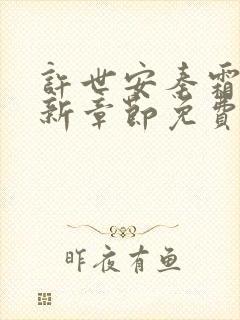 許世安秦霜
新章節免費
昨夜有鱼